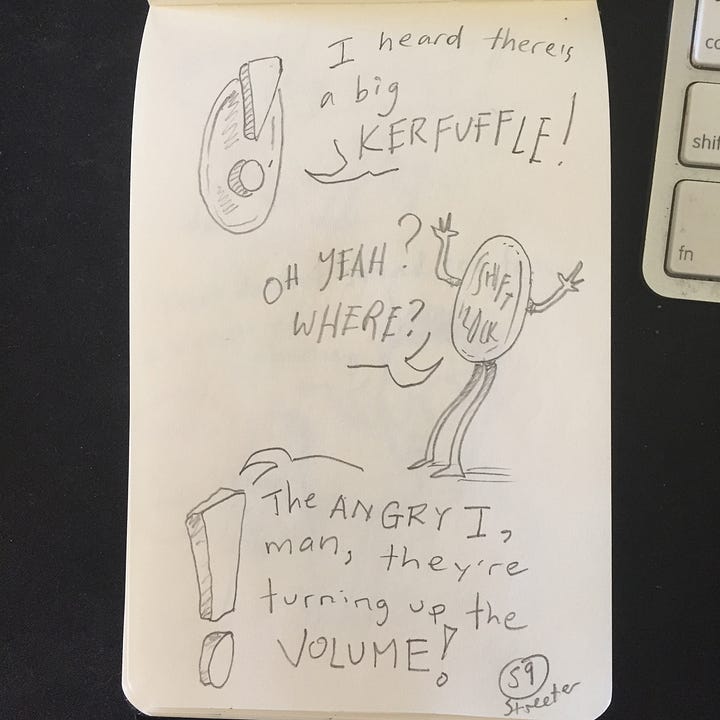 I heard there's
a big
KERFUFFLE!
OH YEAH?
WHERE?
SHIFT
LOCK
The ANGRY I,
man, they're
turning up the
VOLUME!
59
Streeter
shif
fn